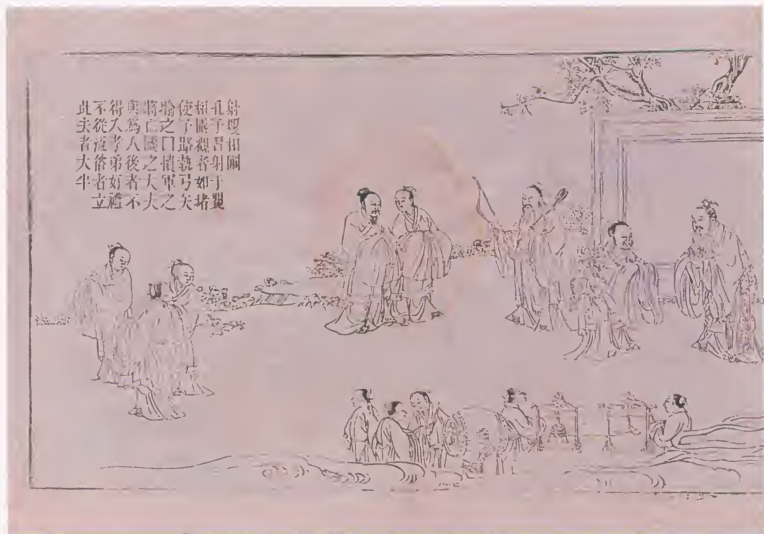 射矍相圃
孔子習射于矍
相圃觀者如堵
使子路執弓矢
之曰軍之
將亡國之大夫
與爲人後者不
得入孝弟好禮
不從流俗者立
此去者大半